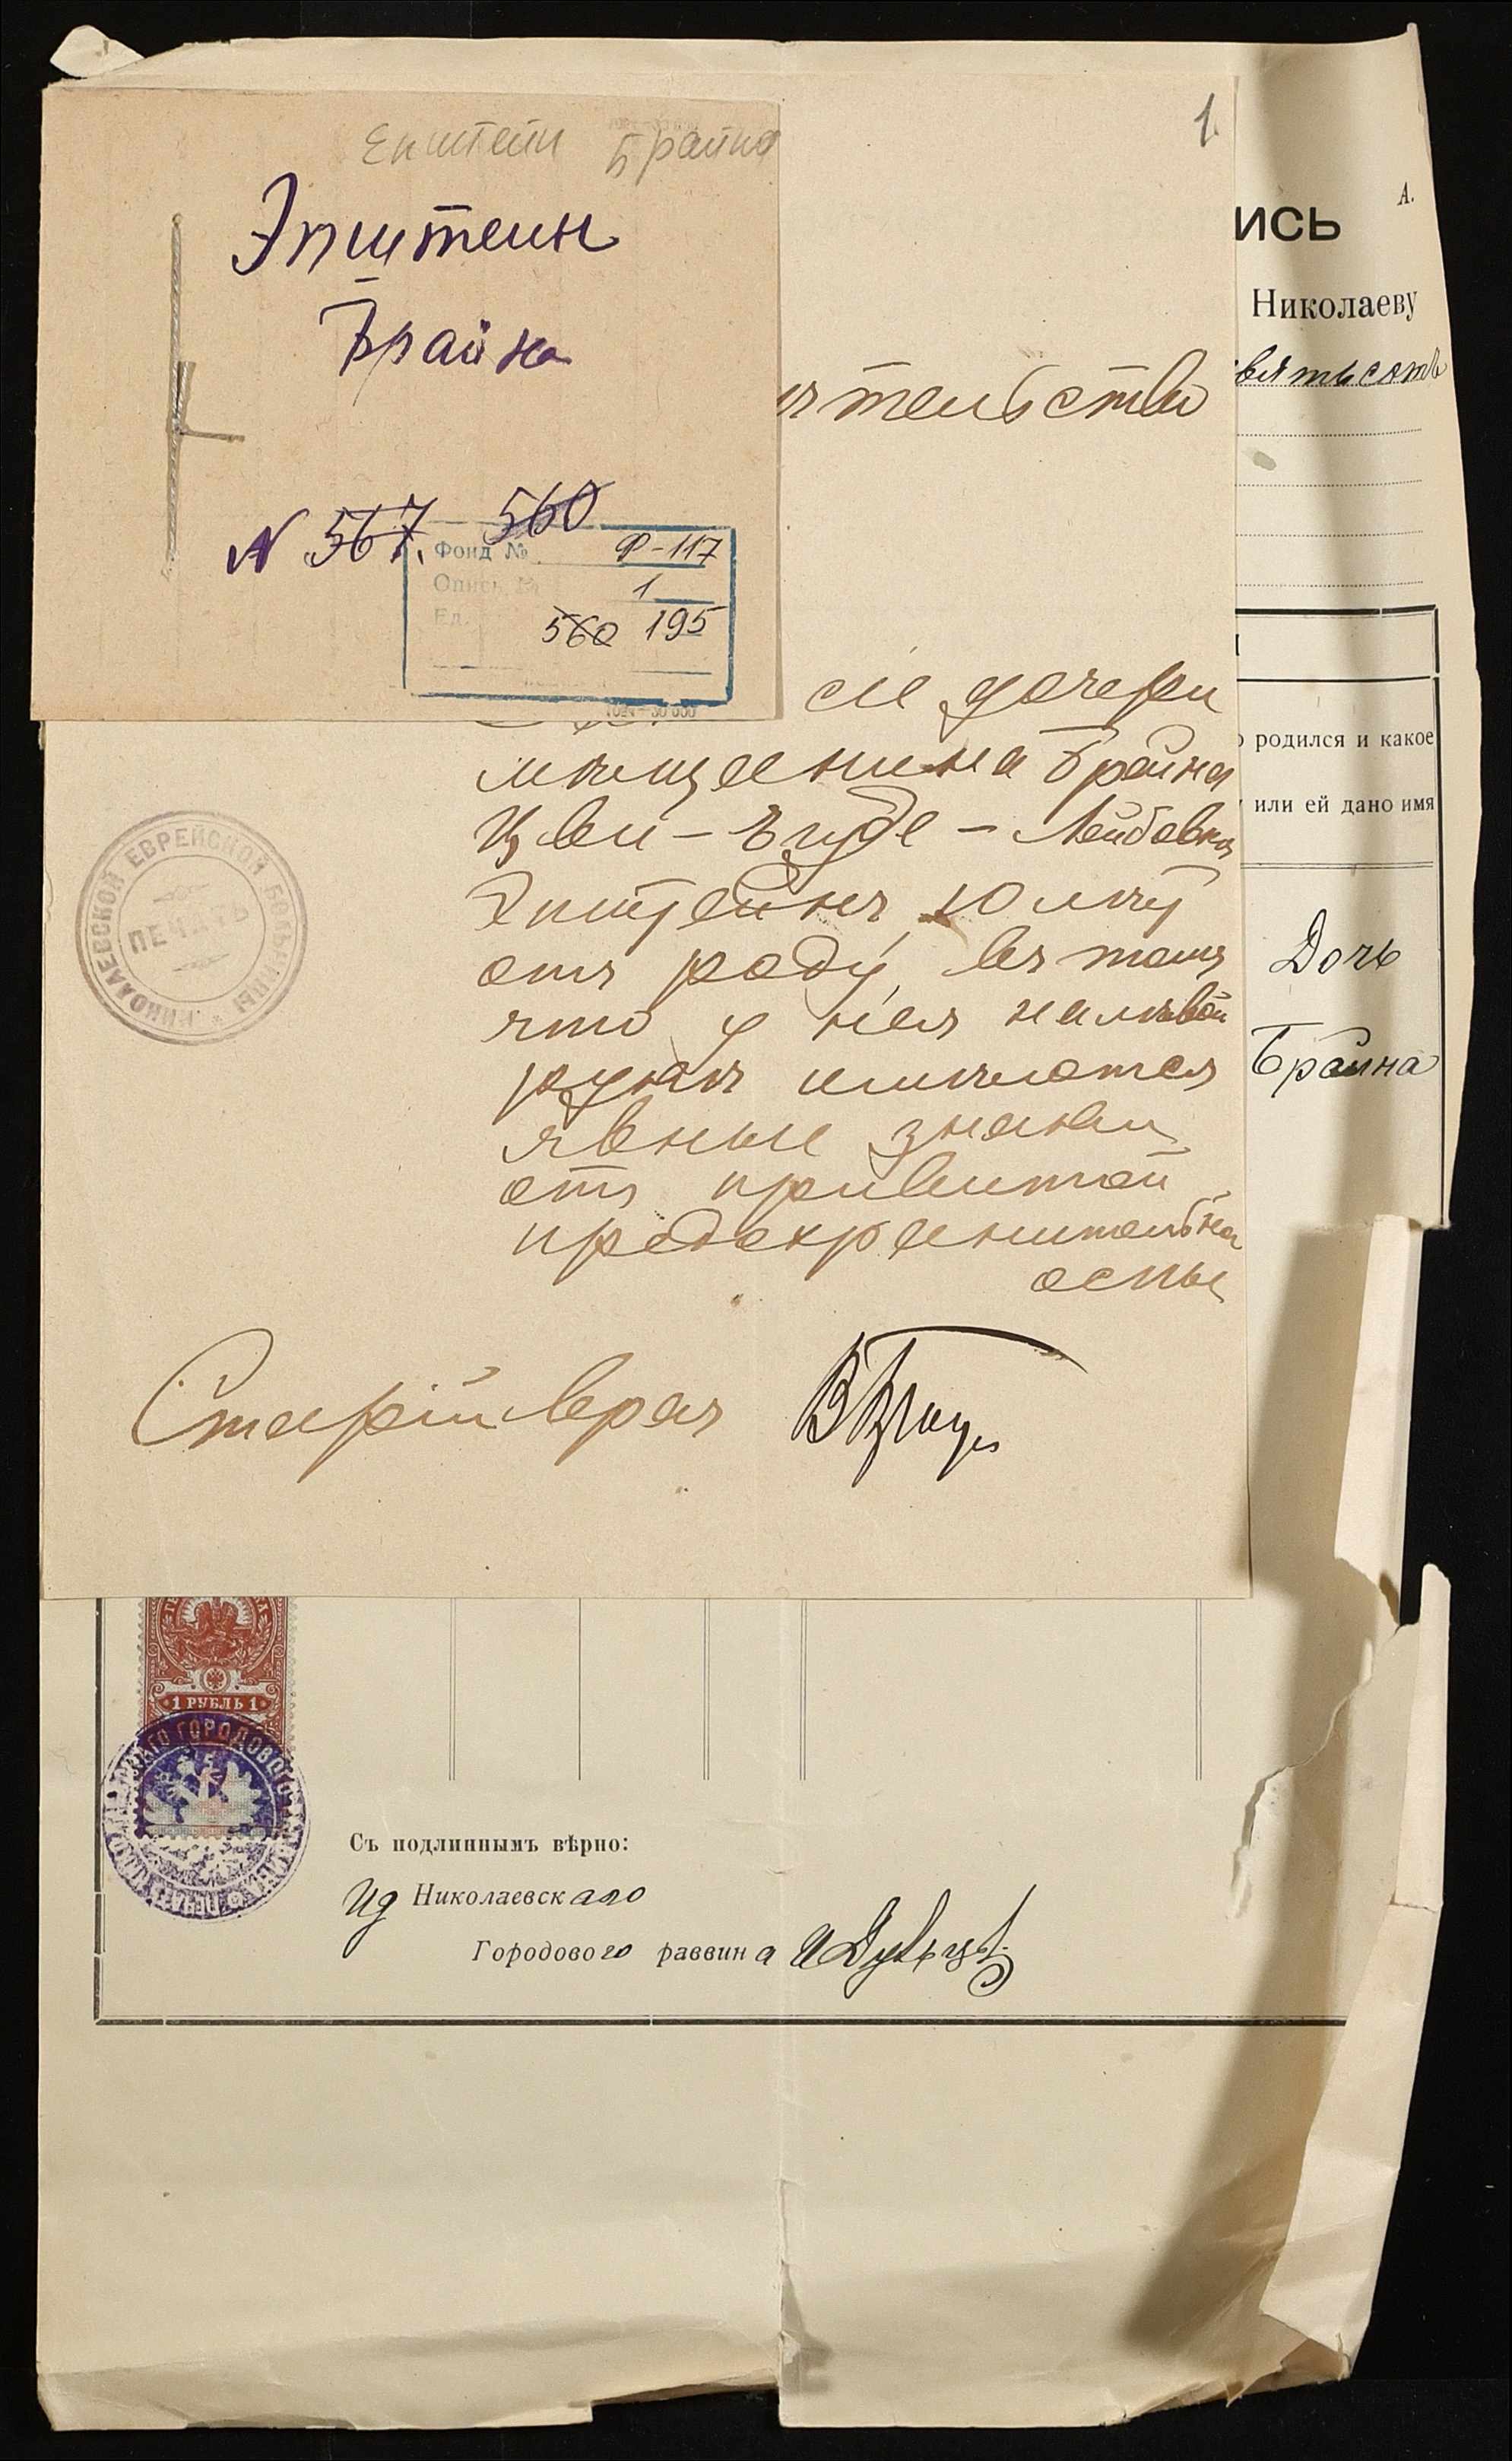 Епштейн Брайна
Эпштейн
Брайна
N 567. 560
Фонд № Ф-117
Опись № 1
Ед. 560 195
1
ительство
сіе дочери
мѣщанина Брайна
Цви-Гуде-Лейбовна
Эпштейнъ, 10 лѣтъ
отъ роду, въ томъ
что у нея на лѣвой
рукѣ имѣются
явные знаки
отъ привитой
предохранительной
оспы
Старшій врач
НИКОЛАЕВСКОЙ ЕВРЕЙСКОЙ БОЛЬНИЦЫ *
ПЕЧАТЬ
А.
ИСЬ
Николаеву
вятьсотъ
родился и какое
или ей дано имя
Дочь
Брайна
1 РУБЛЬ 1
ГОРОДОВОГО
Съ подлиннымъ вѣрно:
Ид Николаевскаго
Городового раввина